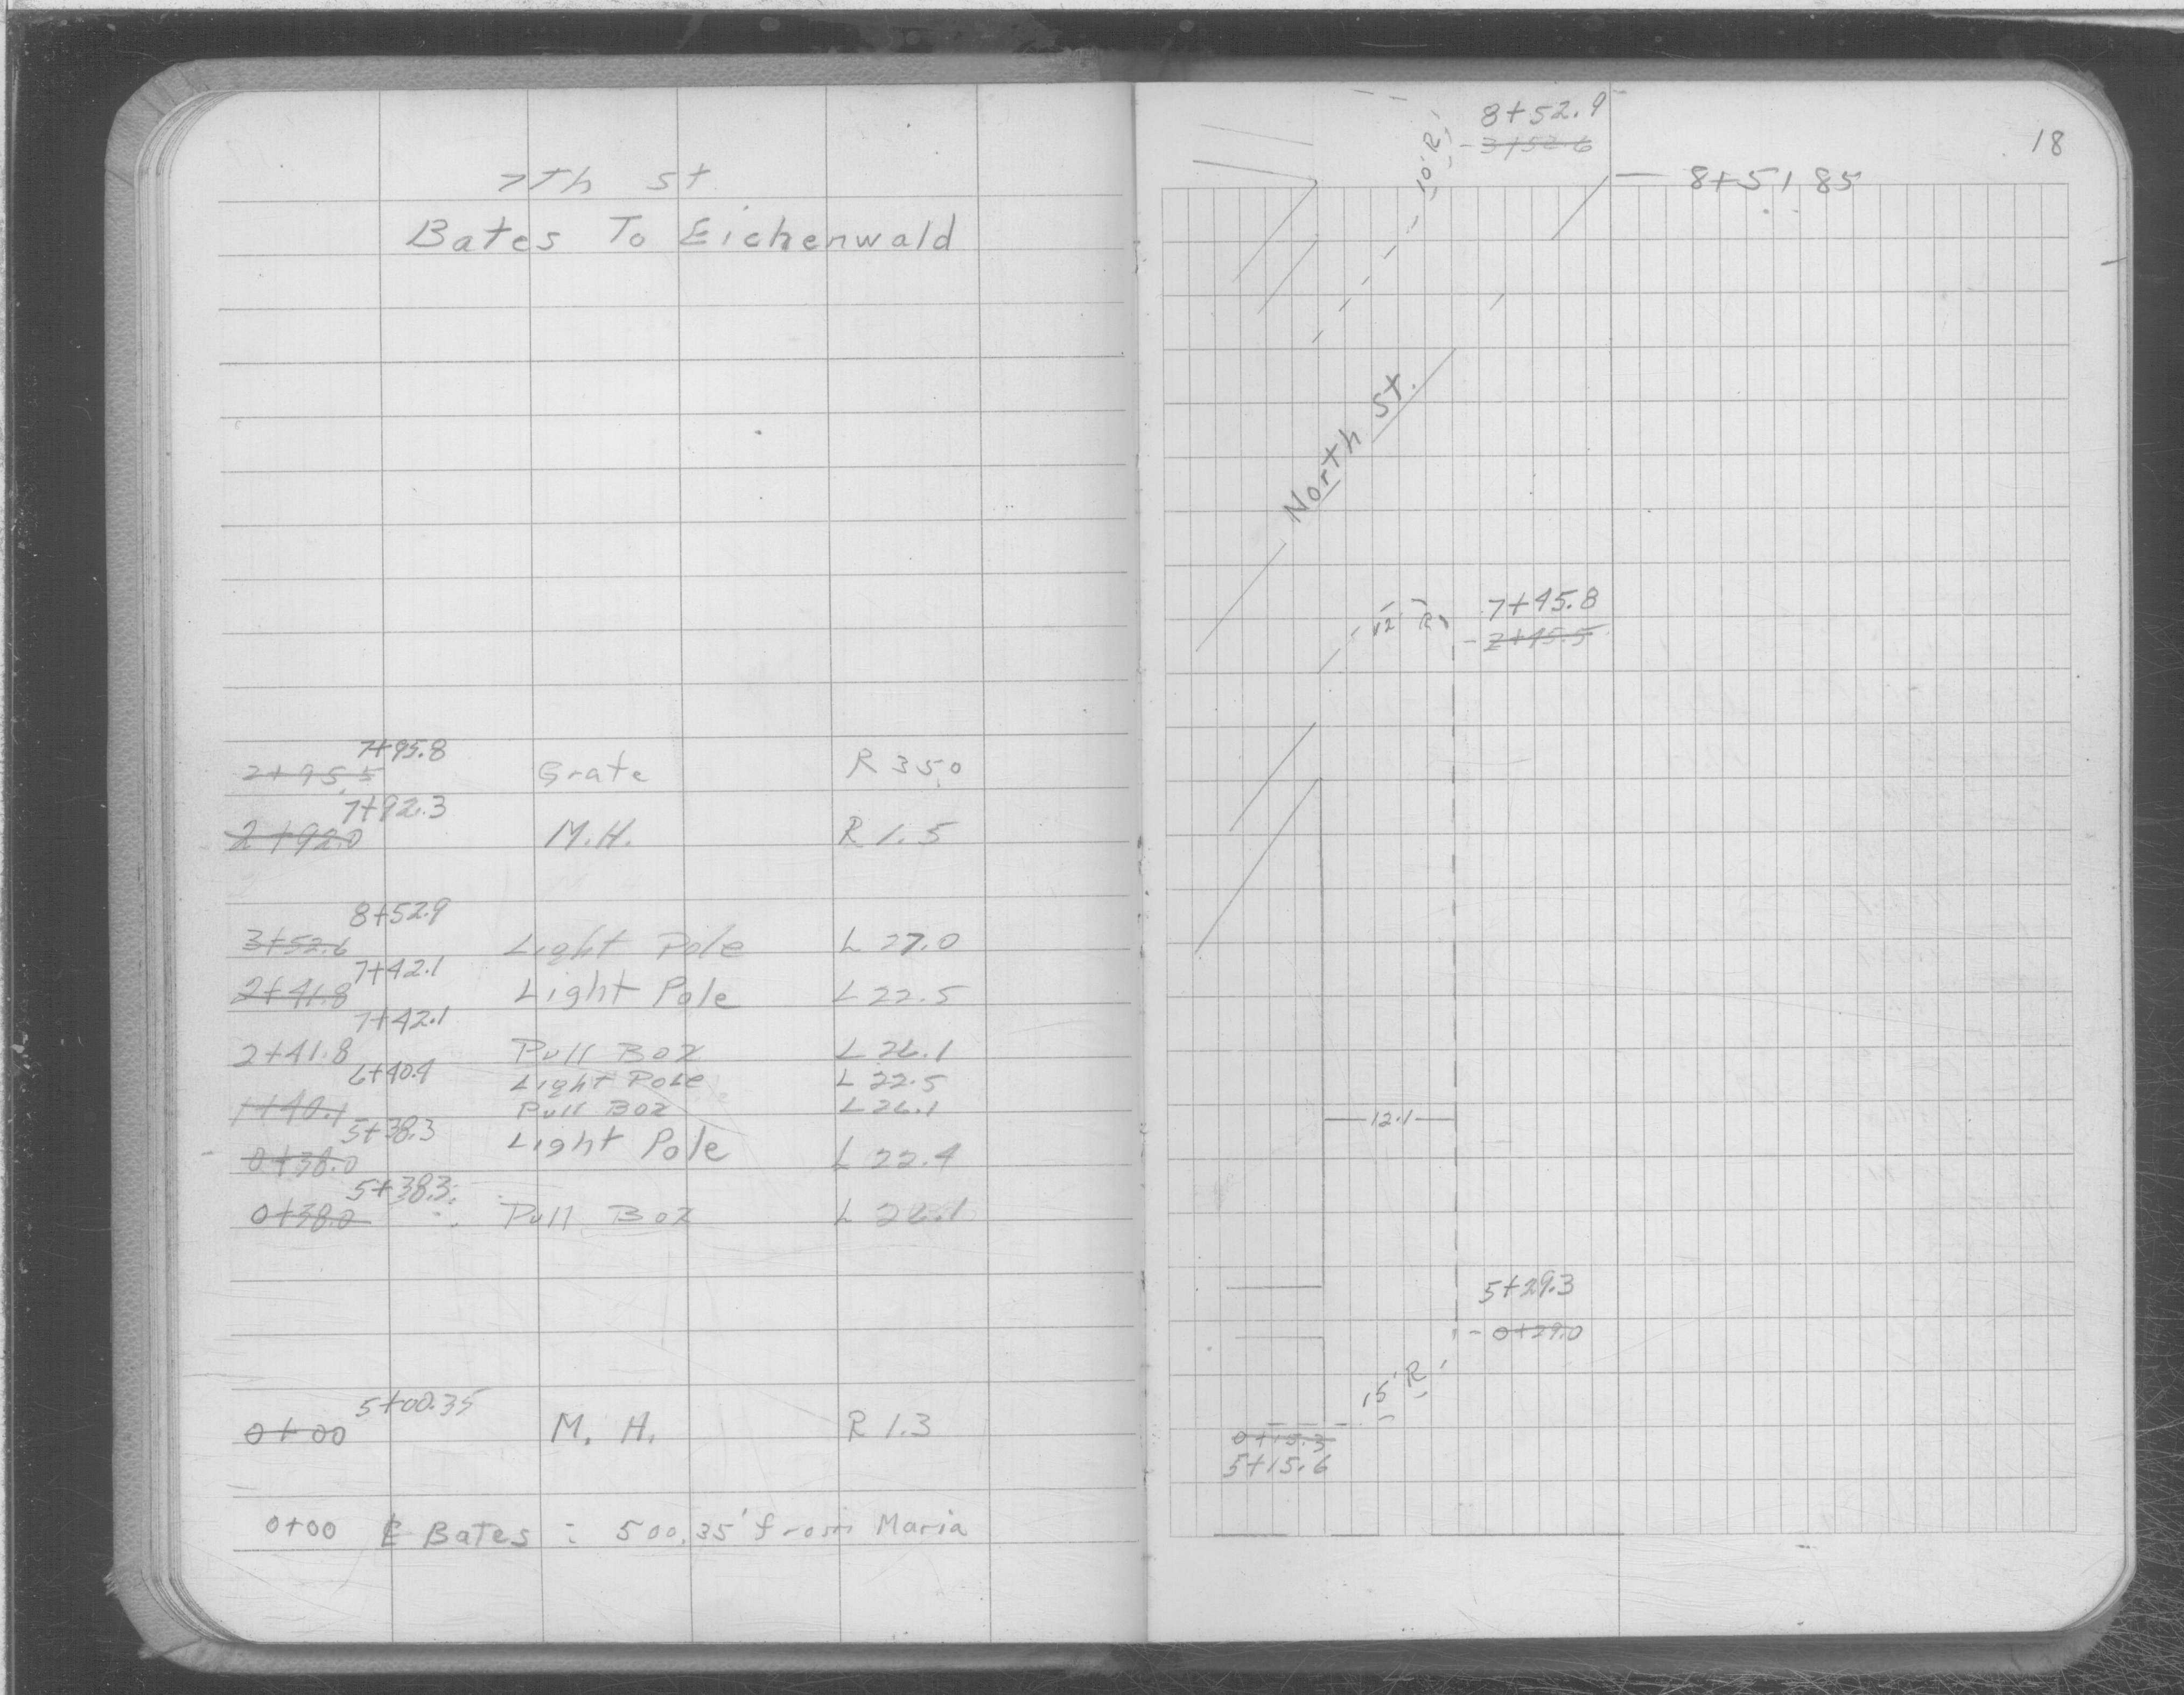 7Th St
Bates To Eichenwald
7+95.8
2+95.5 Grate R 35.0
7+92.3
2+92.0 M.H. R 1.5
8+52.9
3+52.6 Light Pole L 27.0
7+42.1
2+41.8 Light Pole L 22.5
7+42.1
2+41.8 Pull Box L 26.1
6+40.4 Light Pole L 22.5
1+40.1 Pull Box L 26.1
5+38.3
0+38.0 Light Pole L 22.4
5+38.3
0+38.0 Pull Box L 26.1
5+00.35
0+00 M. H. R 1.3
0+00 ℄ Bates = 500.35' from Maria
18
8+52.9
3+52.6
10' R
8+51.85
North St.
7+45.8
2+45.5
12' R
12.1
5+29.3
0+29.0
15' R
0+15.3
5+15.6